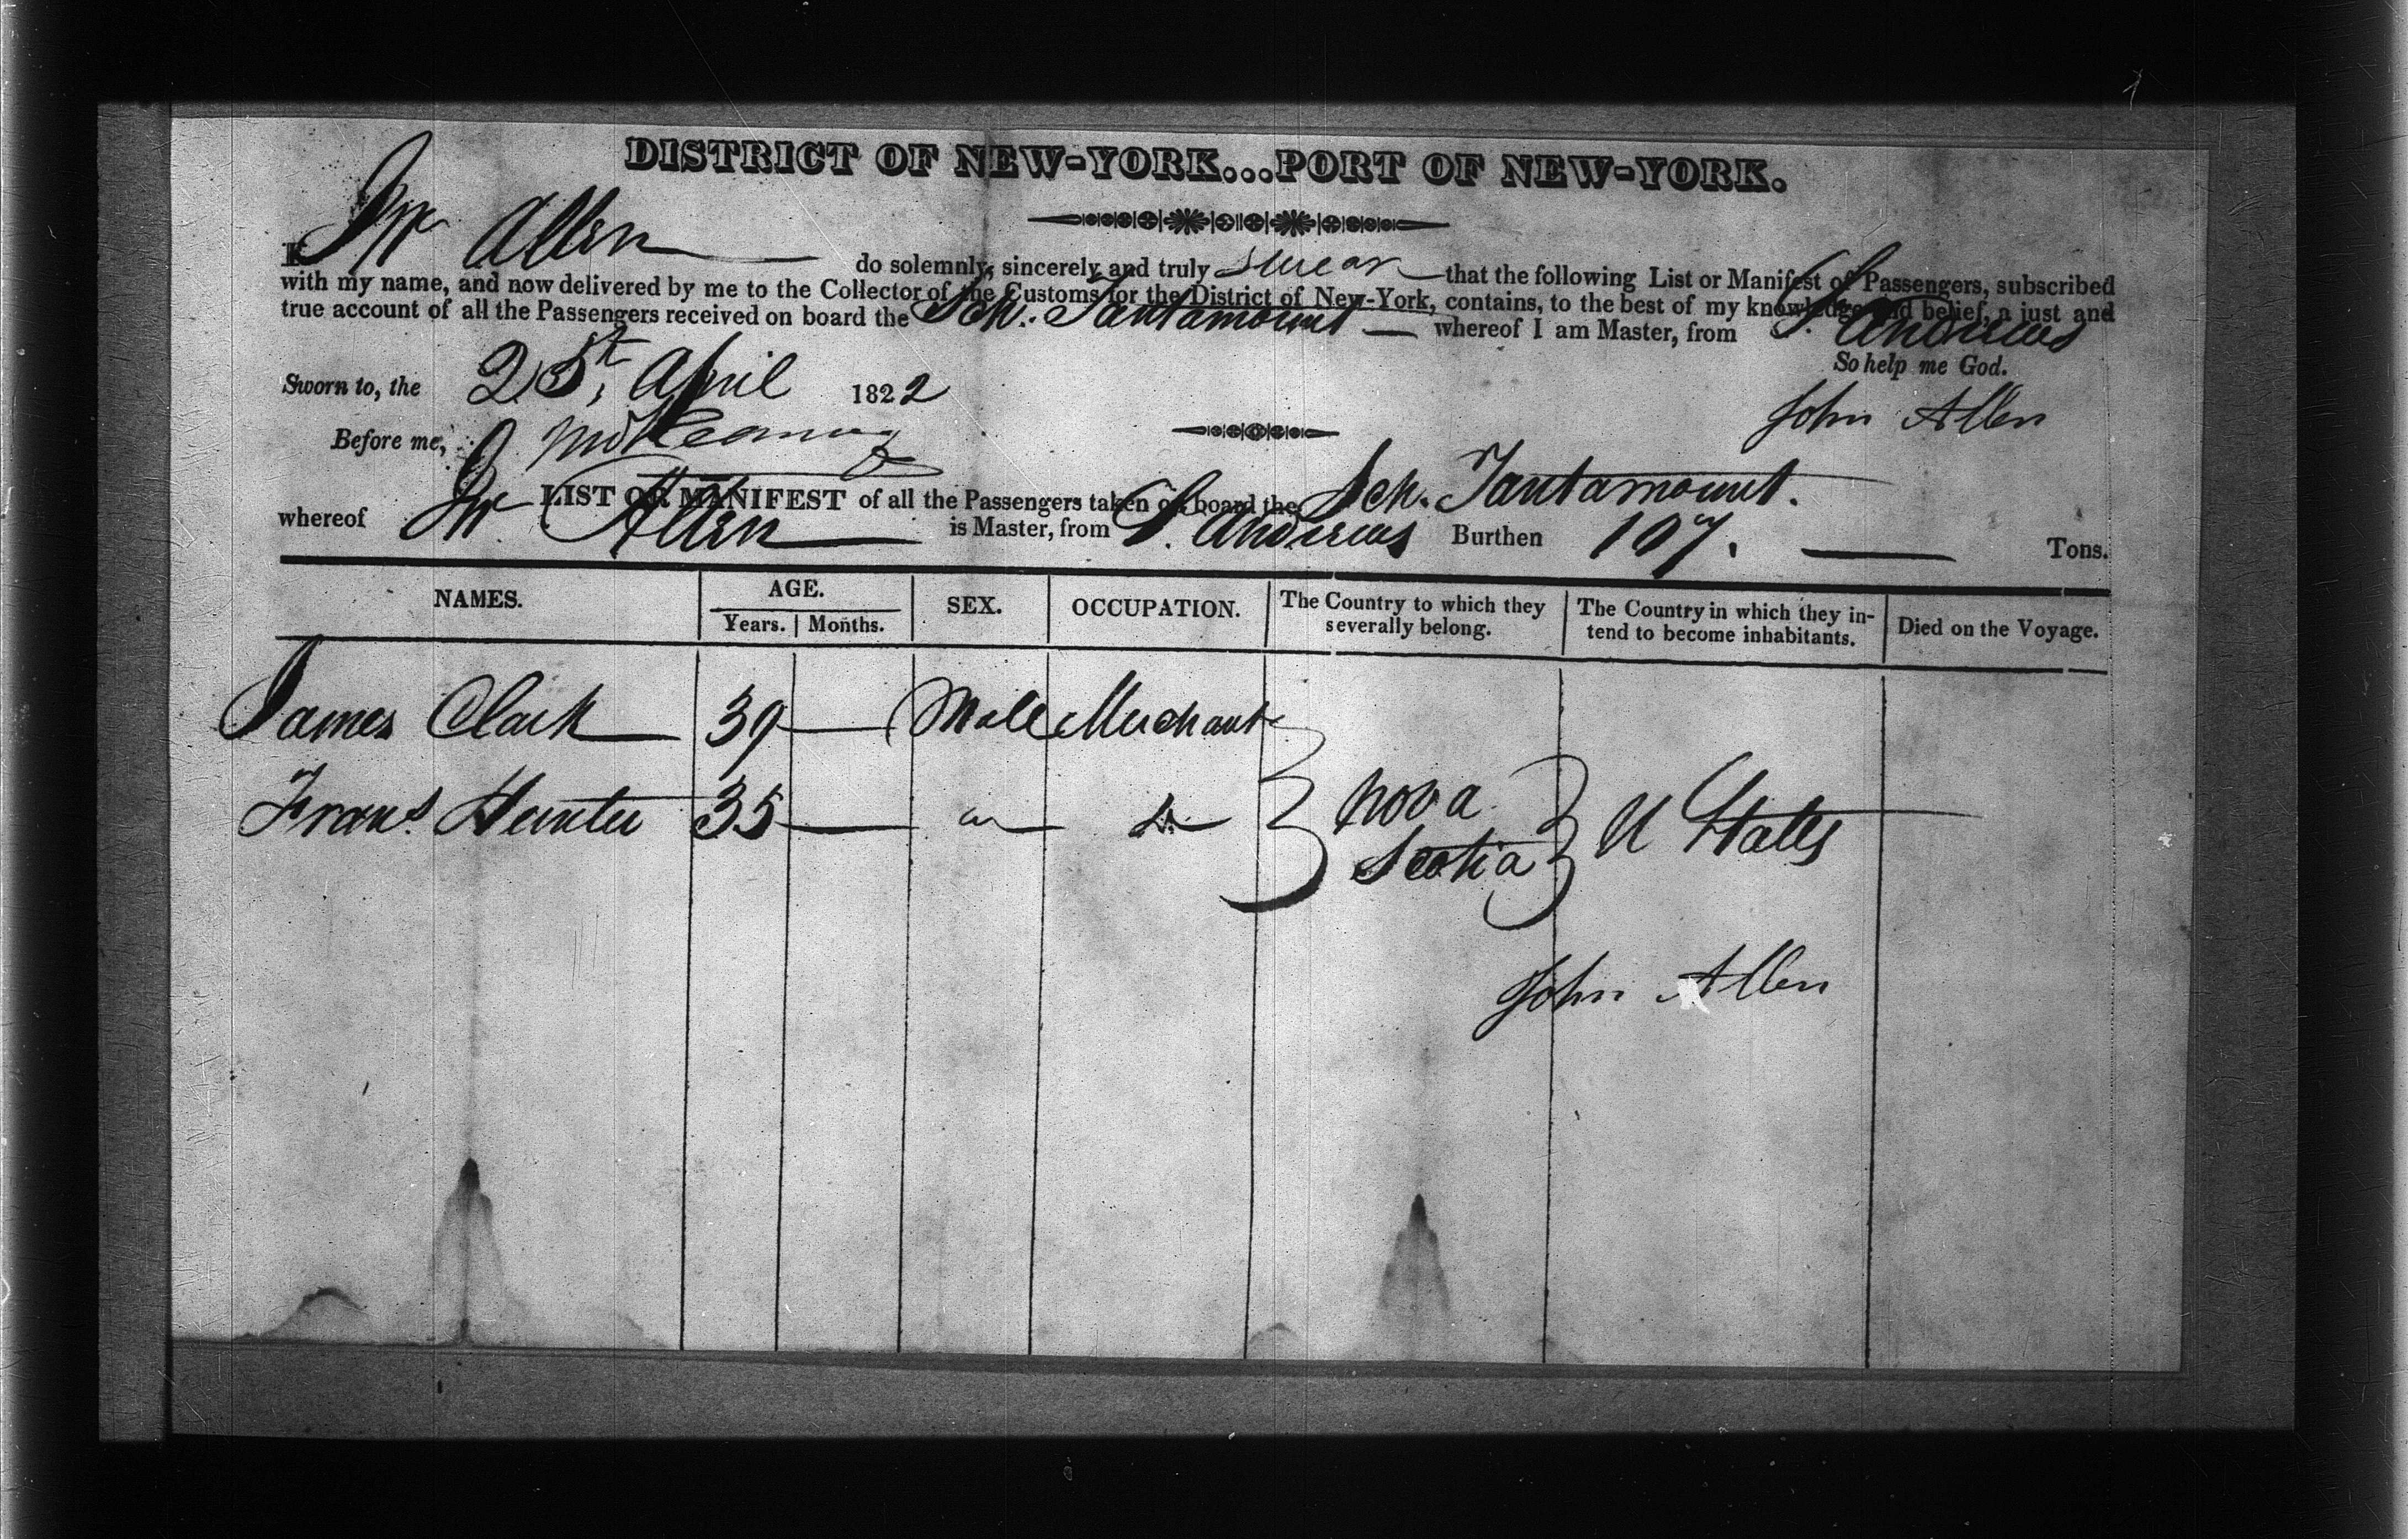 DISTRICT OF NEW-YORK...PORT OF NEW-YORK.
I Jn Allen do solemnly, sincerely and truly swear that the following List or Manifest of Passengers, subscribed
with my name, and now delivered by me to the Collector of the Customs for the District of New-York, contains, to the best of my knowledge and belief, a just and
true account of all the Passengers received on board the Sch. Tantamount whereof I am Master, from St. Andrews
So help me God.
Sworn to, the 25th April 1822
John Allen
Before me,
LIST OR MANIFEST of all the Passengers taken on board the Sch. Tantamount.
whereof Jn Allen is Master, from St. Andrews Burthen 107. Tons.
NAMES. AGE. SEX. OCCUPATION. The Country to which they severally belong. The Country in which they in-tend to become inhabitants. Died on the Voyage.
Years. Months.
James Clark 39 Male Merchant
Frans. Hunter 35 Nova Scotia U States
John Allen